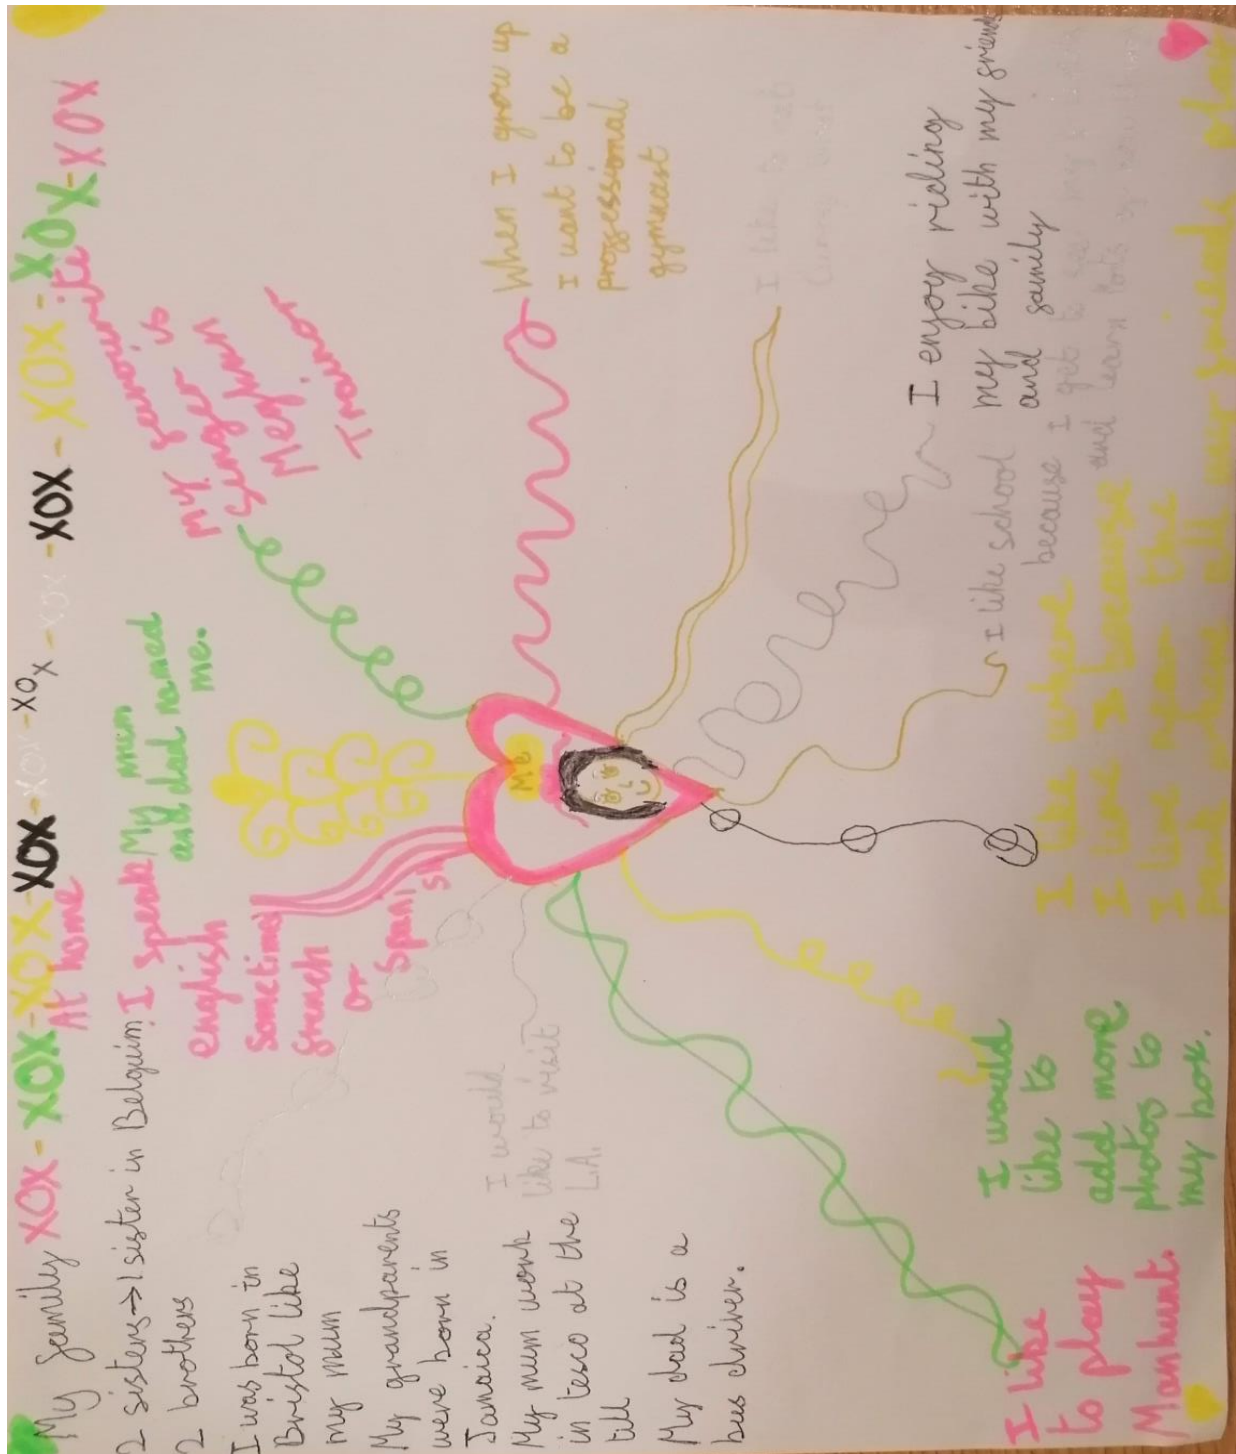 XOX-XOX-XOX-XOX-XOX-XOX-XOX-XOX-XOX-XOX-XOX
My family
2 sisters→1 sister in Belguim
2 brothers
I was born in
Bristol like
my mum
My grandparents
were born in
Jamaica.
My mum work
in tesco at the
till
My dad is a
bus driver.
At home
I speak
english
Sometimes
french
or
Spanish
My mum
and dad named
me.
My favourite
singer is
Meghan
Trainor
I would
like to visit
L.A.
Me
When I grow up
I want to be a
professional
gymnast
I like to eat
I enjoy riding
my bike with my friends
and family
I like school
because I get to see my
and learn lots of new
I like where
I live because
I live near the
park where all my friends play
I would
like to
add more
photos to
my box.
I like
to play
Manhunt.